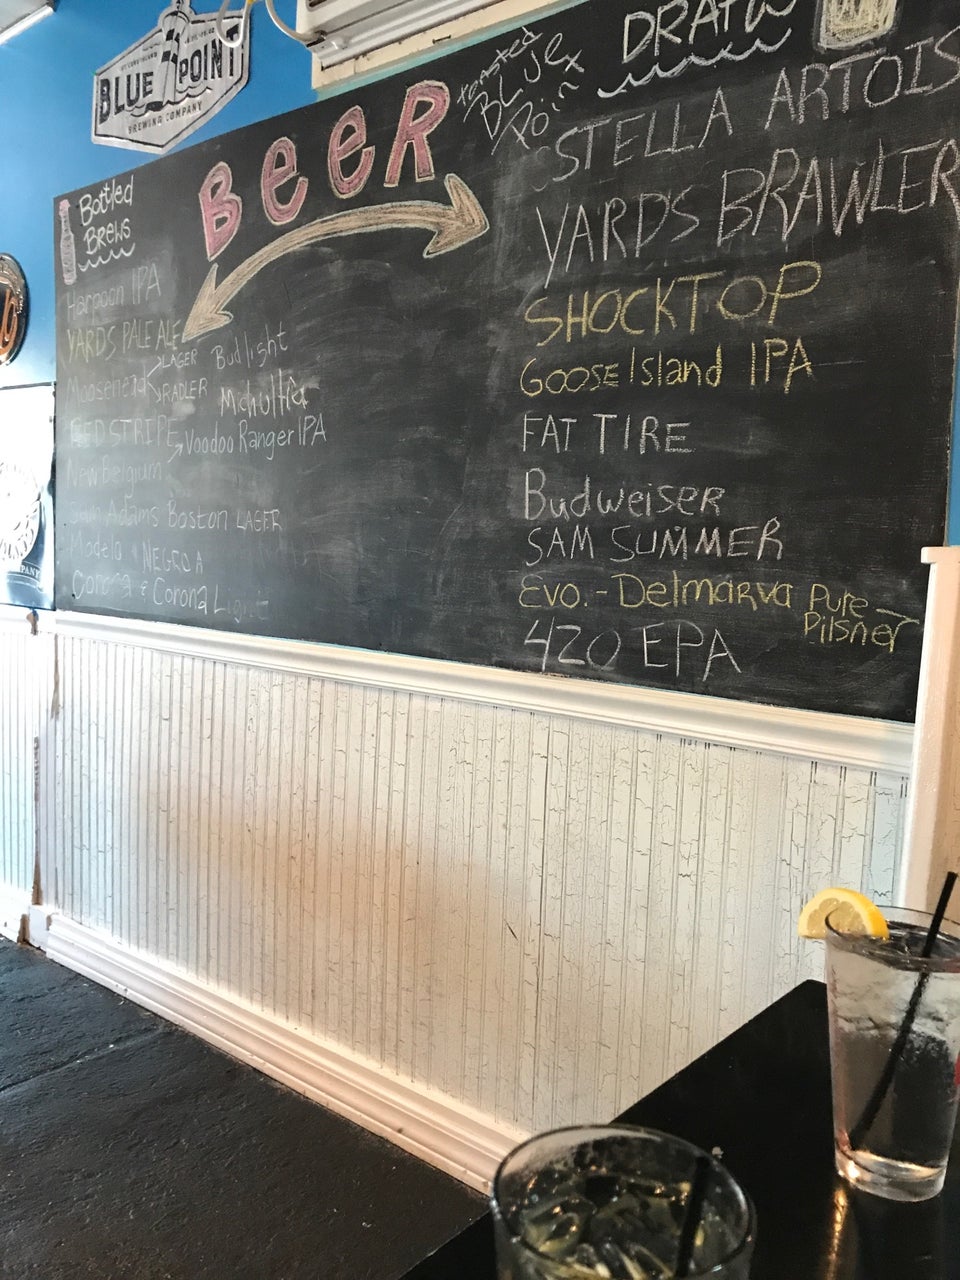 BLUE POINT
BREWING COMPANY
BEER
Bottled
Brews
Harpoon IPA
YARDS PALE ALE
Moosehead LAGER
RADLER
Bud light
Mich ultra
RED STRIPE
New Belgium Voodoo Ranger IPA
Sam Adams Boston LAGER
Modelo NEGRA
Corona & Corona Light
Toasted
BLUE
Point
DRAFT
STELLA ARTOIS
YARD'S BRAWLER
SHOCKTOP
GOOSE Island IPA
FAT TIRE
Budweiser
SAM SUMMER
EVO. - Delmarva Pure
Pilsner
420 EPA